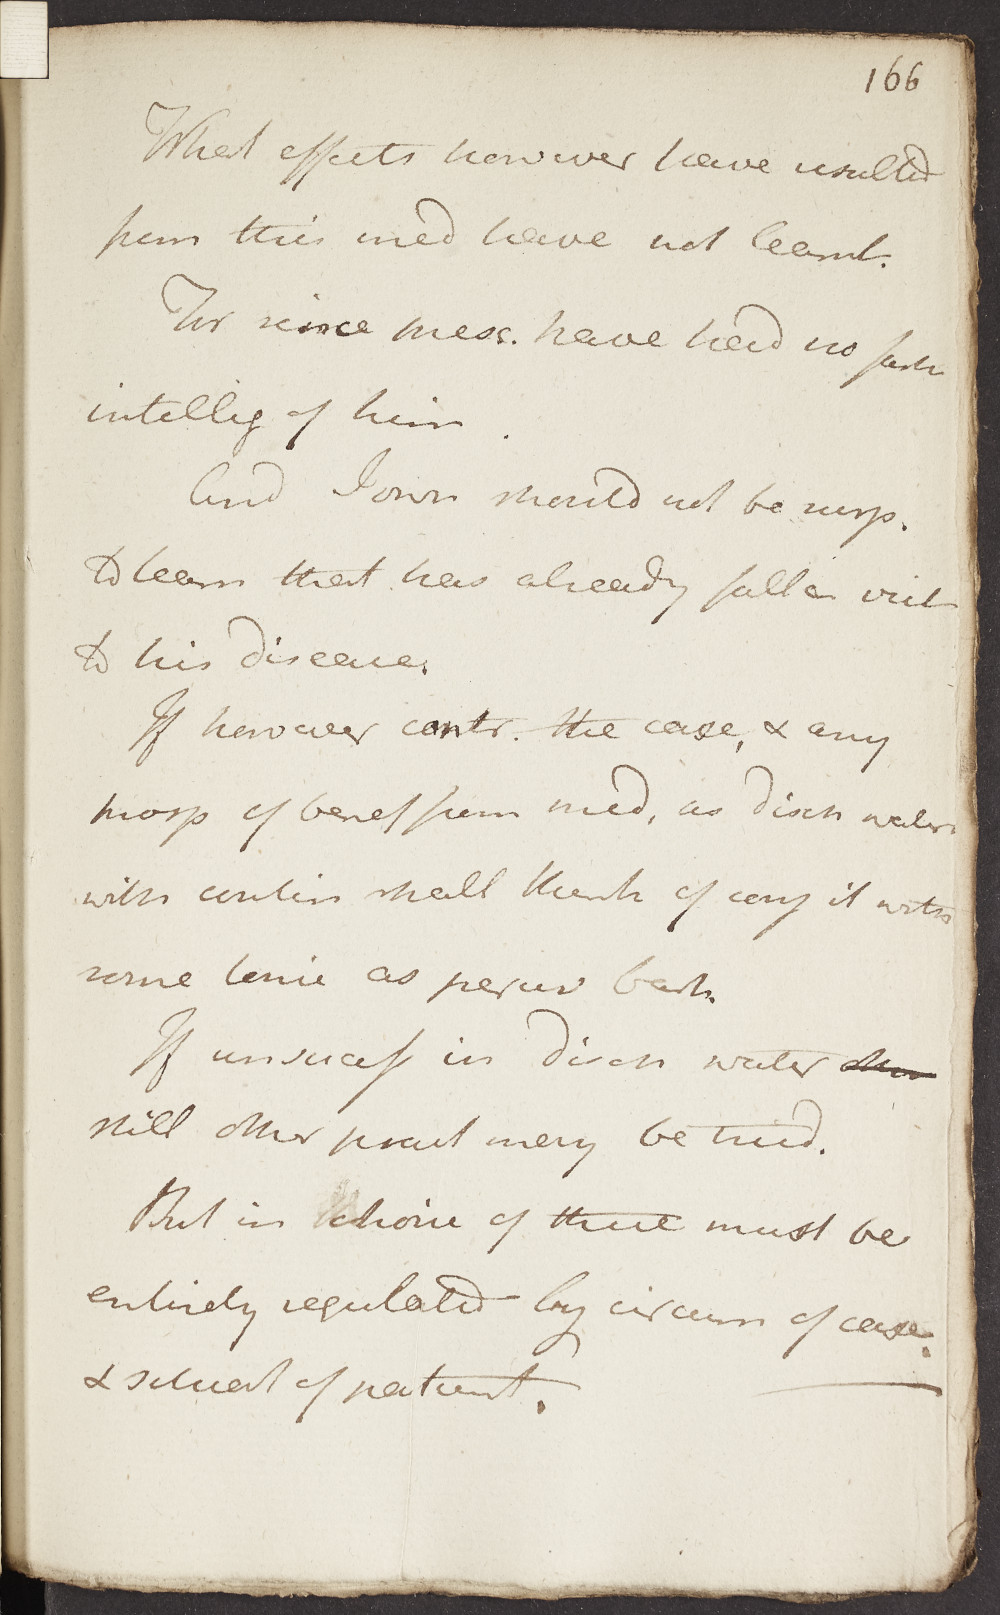 166
What effects however have resulted
from this med have not learnt.
For since presc. have had no farth
intellig of him.
And I own should not be surp.
to learn that has already fallen vict
to his disease.
If however contr. the case, & any
prosp of benef from med, as disch water
with contin shall think of conj it with
some tonic as peruv bark.
If unsuccess in disch water
still other pract may be tried.
But in choice of these must be
entirely regulated by circum of case.
& situat of patient.